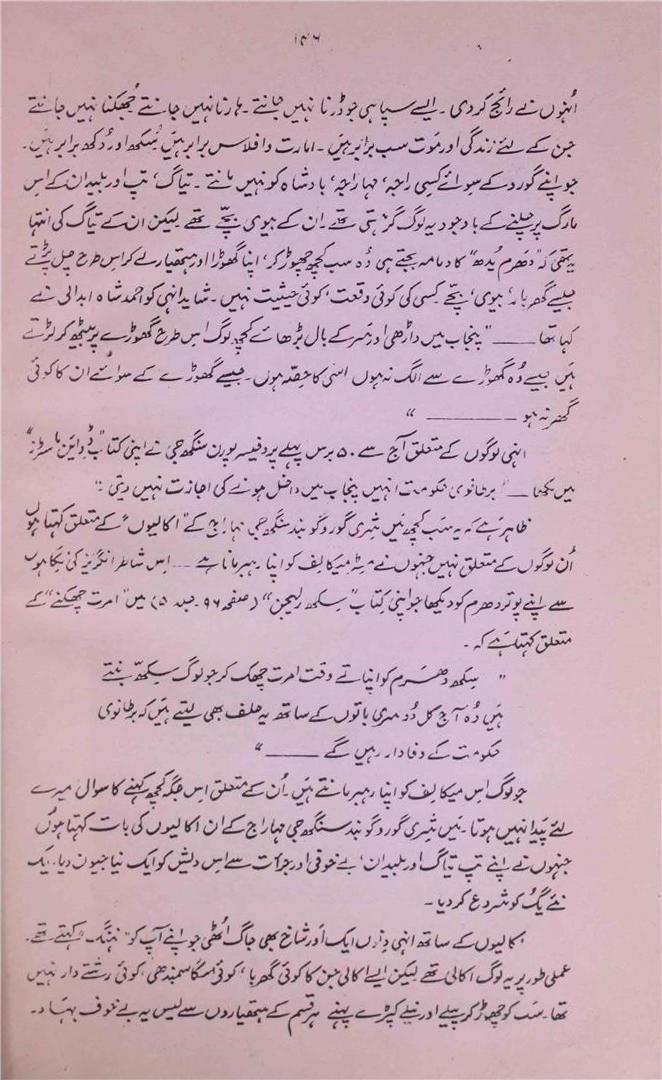 ۱۴۶
اُنہوں نے رائج کر دی۔ ایسے سپاہی جو ڈرنا نہیں جانتے۔ ہارنا نہیں جانتے جُھکنا نہیں جانتے
جن کے لئے زندگی اور موت سب برابر ہیں۔ امارت و افلاس برابر ہیں سُکھ اور دُکھ برابر ہیں۔
جو اپنے گورو کے سوائے کسی راجہ، مہاراجہ، بادشاہ کو نہیں مانتے۔ تیاگ، تپ اور بلیدان کے اس
مارگ پر چلنے کے باوجود یہ لوگ گرہستی تھے۔ ان کے بیوی بچّے تھے لیکن ان کے تیاگ کی انتہا
یہ تھی کہ "دھرم یُدھ" کا دمامہ بجتے ہی وُہ سب کچھ چھوڑ کر، اپنا گھوڑا اور ہتھیار لے کر اس طرح چل پڑتے
جیسے گھر بار، بیوی، بچّے کسی کی کوئی وقعت، کوئی حیثیت نہیں۔ شاید انہی کو احمد شاہ ابدالی نے
کہا تھا ــــــ "پنجاب میں داڑھی اور سر کے بال بڑھائے کچھ لوگ اس طرح گھوڑے پر بیٹھ کر لڑتے
ہیں جیسے وُہ گھوڑے سے الگ نہ ہوں اسی کا حصّہ ہوں۔ جیسے گھوڑے کے سوائے ان کا کوئی
گھر نہ ہو ــــــــــــ "
انہی لوگوں کے متعلق آج سے ۵۰ برس پہلے پروفیسر پورن سنگھ جی نے اپنی کتاب "ڈوائین ماسٹرز"
میں لکھا ــــ "برطانوی حکومت انہیں پنجاب میں داخل ہونے کی اجازت نہیں دیتی"
ظاہر ہے کہ یہ سب کچھ میں شری گورو گوبند سنگھ جی مہاراج کے "اکالیوں" کے متعلق کہتا ہوں
اُن لوگوں کے متعلق نہیں جنہوں نے مسٹر میکالیف کو اپنا رہبر مانا ہے ... اس شاطر انگریز کی نگاہوں
سے اپنے پوتر دھرم کو دیکھا جو اپنی کتاب "سکھ ریلیجن" (صفحہ ۹۶۔ جلد ۵) میں "امرت چھکنے" کے
متعلق کہتا ہے کہ۔
" سکھ دھرم کو اپناتے وقت امرت چھک کر جو لوگ سکھ بنتے
ہیں وُہ آج کل دوسری باتوں کے ساتھ یہ حلف بھی لیتے ہیں کہ برطانوی
حکومت کے وفادار رہیں گے ــــــــ "
جو لوگ اس میکالیف کو اپنا رہبر مانتے ہیں۔ اُن کے متعلق اس جگہ کچھ کہنے کا سوال میرے
لئے پیدا نہیں ہوتا۔ میں شری گورو گوبند سنگھ جی مہاراج کے ان اکالیوں کی بات کہتا ہوں
جنہوں نے اپنے تپ تیاگ اور بلیدان، بے خوفی اور جرأت سے اس دیش کو ایک نیا جیون دیا۔ ایک
نئے یُگ کو شروع کر دیا۔
اکالیوں کے ساتھ انہی دِنوں ایک اَور شاخ بھی جاگ اُٹھی جو اپنے آپ کو "نہنگ" کہتے تھے۔
عملی طور پر یہ لوگ اکالی تھے لیکن ایسے اکالی جن کا کوئی گھر بار، کوئی سگا سمبندھی، کوئی رشتے دار نہیں
تھا۔ سب کو چھوڑ کر پیلے اور نیلے کپڑے پہنے ہر قسم کے ہتھیاروں سے لیس یہ بے خوف بہادر۔